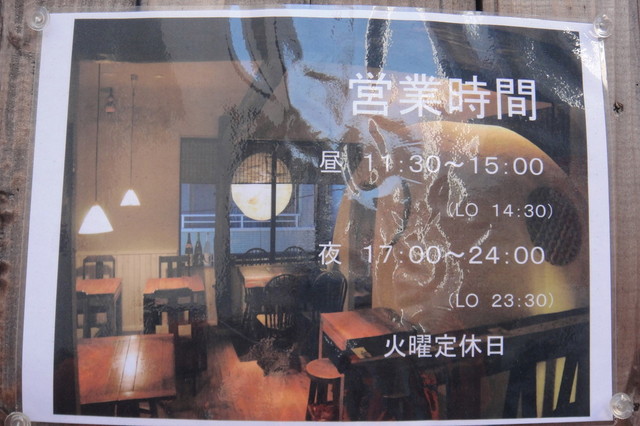 営業時間
昼 11:30～15:00
(LO 14:30)
夜 17:00～24:00
(LO 23:30)
火曜定休日